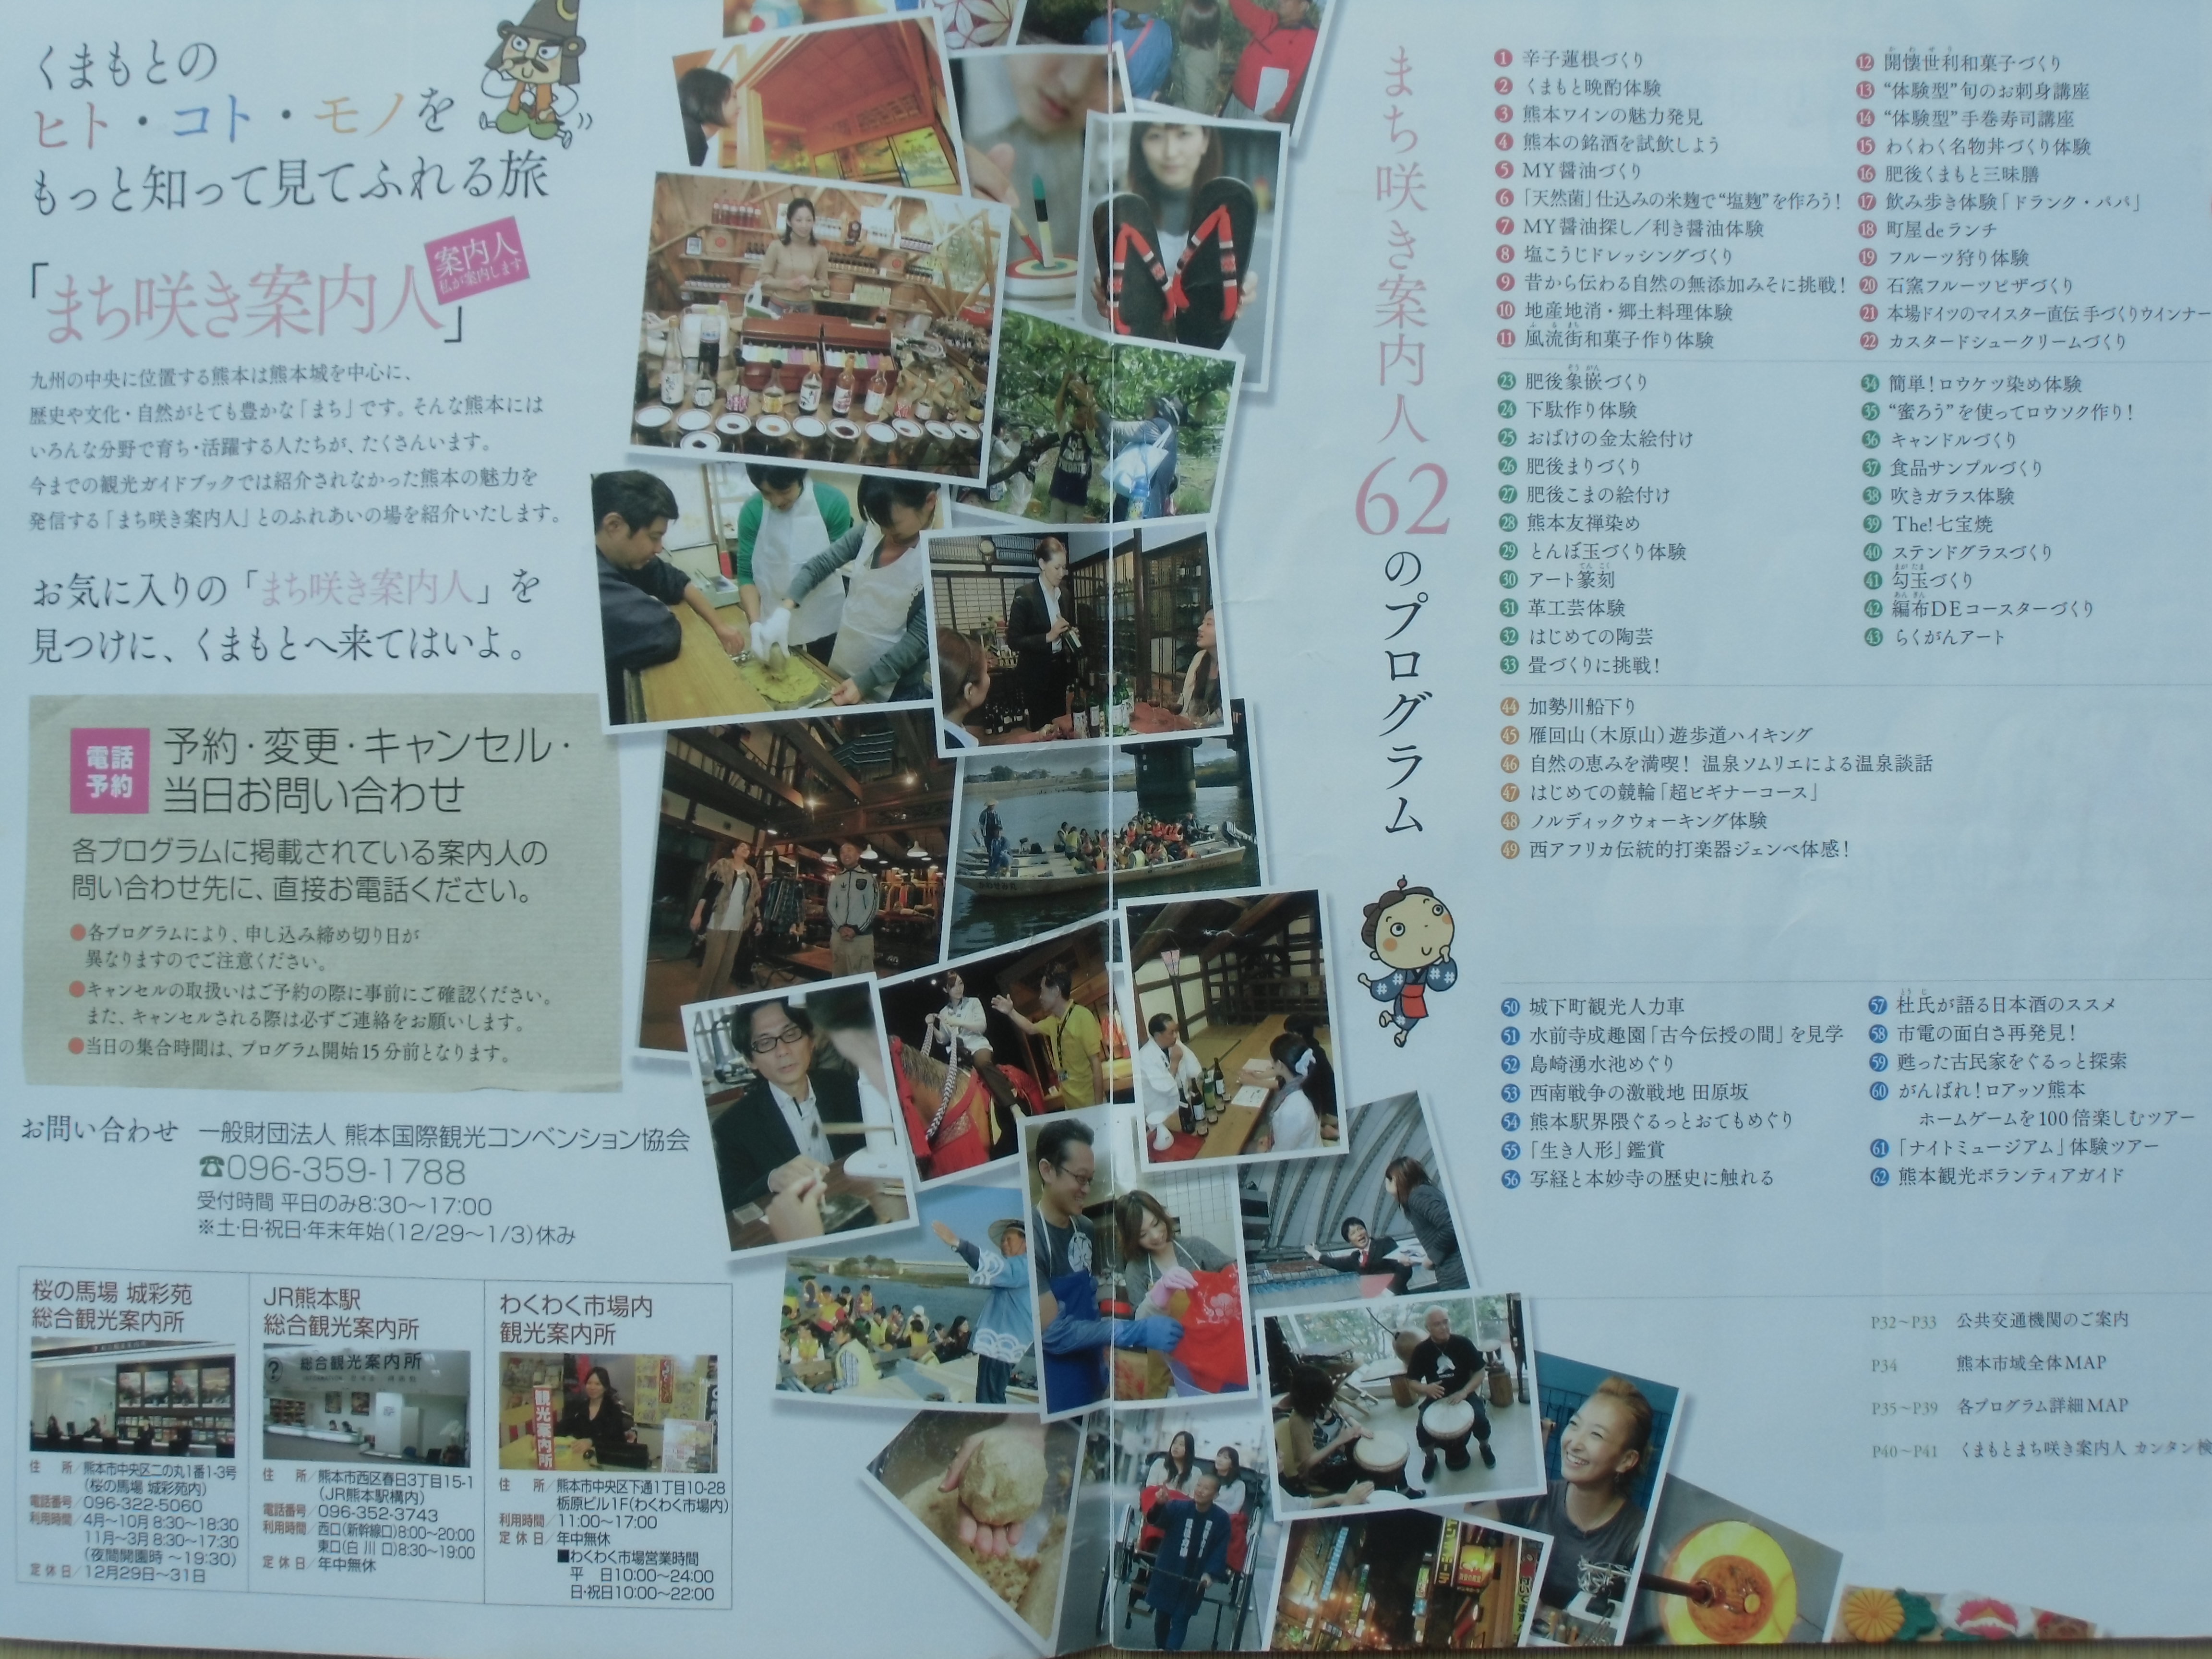 くまもとの
ヒト・コト・モノを
もっと知って見てふれる旅
「まち咲き案内人」
案内人
私が案内します
九州の中央に位置する熊本は熊本城を中心に、
歴史や文化・自然がとても豊かな「まち」です。そんな熊本には
いろんな分野で育ち・活躍する人たちが、たくさんいます。
今までの観光ガイドブックでは紹介されなかった熊本の魅力を
発信する「まち咲き案内人」とのふれあいの場を紹介いたします。
お気に入りの「まち咲き案内人」を
見つけに、くまもとへ来てはいよ。
電話
予約
予約・変更・キャンセル・
当日お問い合わせ
各プログラムに掲載されている案内人の
問い合わせ先に、直接お電話ください。
●各プログラムにより、申し込み締め切り日が
異なりますのでご注意ください。
●キャンセルの取扱いはご予約の際に事前にご確認ください。
また、キャンセルされる際は必ずご連絡をお願いします。
●当日の集合時間は、プログラム開始15分前となります。
お問い合わせ 一般財団法人 熊本国際観光コンベンション協会
☎096-359-1788
受付時間 平日のみ8:30～17:00
※土・日・祝日・年末年始(12/29～1/3)休み
桜の馬場 城彩苑
総合観光案内所
住所/熊本市中央区二の丸1番1-3号
(桜の馬場 城彩苑内)
電話番号/096-322-5060
利用時間/4月～10月 8:30～18:30
11月～3月 8:30～17:30
(夜間開園時 ～19:30)
定休日/12月29日～31日
JR熊本駅
総合観光案内所
総合観光案内所
住所/熊本市西区春日3丁目15-1
(JR熊本駅構内)
電話番号/096-352-3743
利用時間/西口(新幹線口)8:00～20:00
東口(白川口)8:30～19:00
定休日/年中無休
わくわく市場内
観光案内所
観光案内所
住所/熊本市中央区下通1丁目10-28
栃原ビル1F(わくわく市場内)
利用時間/11:00～17:00
定休日/年中無休
■わくわく市場営業時間
平日10:00～24:00
日・祝日10:00～22:00
まち咲き案内人62のプログラム
1 辛子蓮根づくり
2 くまもと晩酌体験
3 熊本ワインの魅力発見
4 熊本の銘酒を試飲しよう
5 MY醤油づくり
6 「天然菌」仕込みの米麹で“塩麹”を作ろう!
7 MY醤油探し/利き醤油体験
8 塩こうじドレッシングづくり
9 昔から伝わる自然の無添加みそに挑戦!
10 地産地消・郷土料理体験
11 風流街和菓子作り体験
12 開懐世利和菓子づくり
13 “体験型”旬のお刺身講座
14 “体験型”手巻寿司講座
15 わくわく名物丼づくり体験
16 肥後くまもと三昧膳
17 飲み歩き体験「ドランク・パパ」
18 町屋deランチ
19 フルーツ狩り体験
20 石窯フルーツピザづくり
21 本場ドイツのマイスター直伝 手づくりウインナー
22 カスタードシュークリームづくり
23 肥後象嵌づくり
24 下駄作り体験
25 おばけの金太絵付け
26 肥後まりづくり
27 肥後こまの絵付け
28 熊本友禅染め
29 とんぼ玉づくり体験
30 アート篆刻
31 革工芸体験
32 はじめての陶芸
33 畳づくりに挑戦!
34 簡単!ロウケツ染め体験
35 “蜜ろう”を使ってロウソク作り!
36 キャンドルづくり
37 食品サンプルづくり
38 吹きガラス体験
39 The!七宝焼
40 ステンドグラスづくり
41 勾玉づくり
42 編布DEコースターづくり
43 らくがんアート
44 加勢川船下り
45 雁回山(木原山)遊歩道ハイキング
46 自然の恵みを満喫! 温泉ソムリエによる温泉談話
47 はじめての競輪「超ビギナーコース」
48 ノルディックウォーキング体験
49 西アフリカ伝統的打楽器ジェンベ体感!
50 城下町観光人力車
51 水前寺成趣園「古今伝授の間」を見学
52 島崎湧水池めぐり
53 西南戦争の激戦地 田原坂
54 熊本駅界隈ぐるっとおてもめぐり
55 「生き人形」鑑賞
56 写経と本妙寺の歴史に触れる
57 杜氏が語る日本酒のススメ
58 市電の面白さ再発見!
59 甦った古民家をぐるっと探索
60 がんばれ!ロアッソ熊本
ホームゲームを100倍楽しむツアー
61 「ナイトミュージアム」体験ツアー
62 熊本観光ボランティアガイド
P32～P33 公共交通機関のご案内
P34 熊本市域全体MAP
P35～P39 各プログラム詳細MAP
P40～P41 くまもとまち咲き案内人 カンタン検